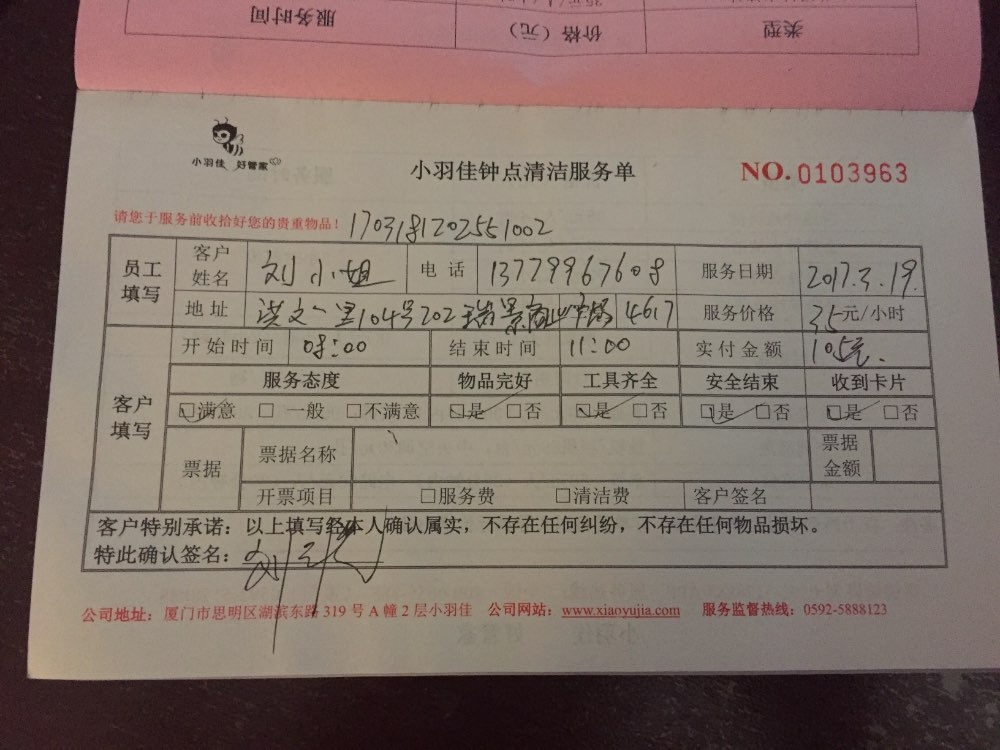 服务时间 价格（元） 类型
小羽佳 好管家
小羽佳钟点清洁服务单 NO. 0103963
请您于服务前收拾好您的贵重物品！ 1703181202551002
员工填写 客户姓名 刘小姐 电话 13779967608 服务日期 2017.3.19.
地址 洪文一里104号202 瑞景商业广场 4617 服务价格 35元/小时
客户填写 开始时间 08:00 结束时间 11:00 实付金额 105元.
服务态度 物品完好 工具齐全 安全结束 收到卡片
☑满意 □一般 □不满意 ☑是 □否 ☑是 □否 ☑是 □否 ☑是 □否
票据 票据名称 票据金额
开票项目 □服务费 □清洁费 客户签名
客户特别承诺：以上填写经本人确认属实，不存在任何纠纷，不存在任何物品损坏。
特此确认签名：刘
公司地址：厦门市思明区湖滨东路 319 号 A 幢 2 层小羽佳 公司网站：www.xiaoyujia.com 服务监督热线：0592-5888123